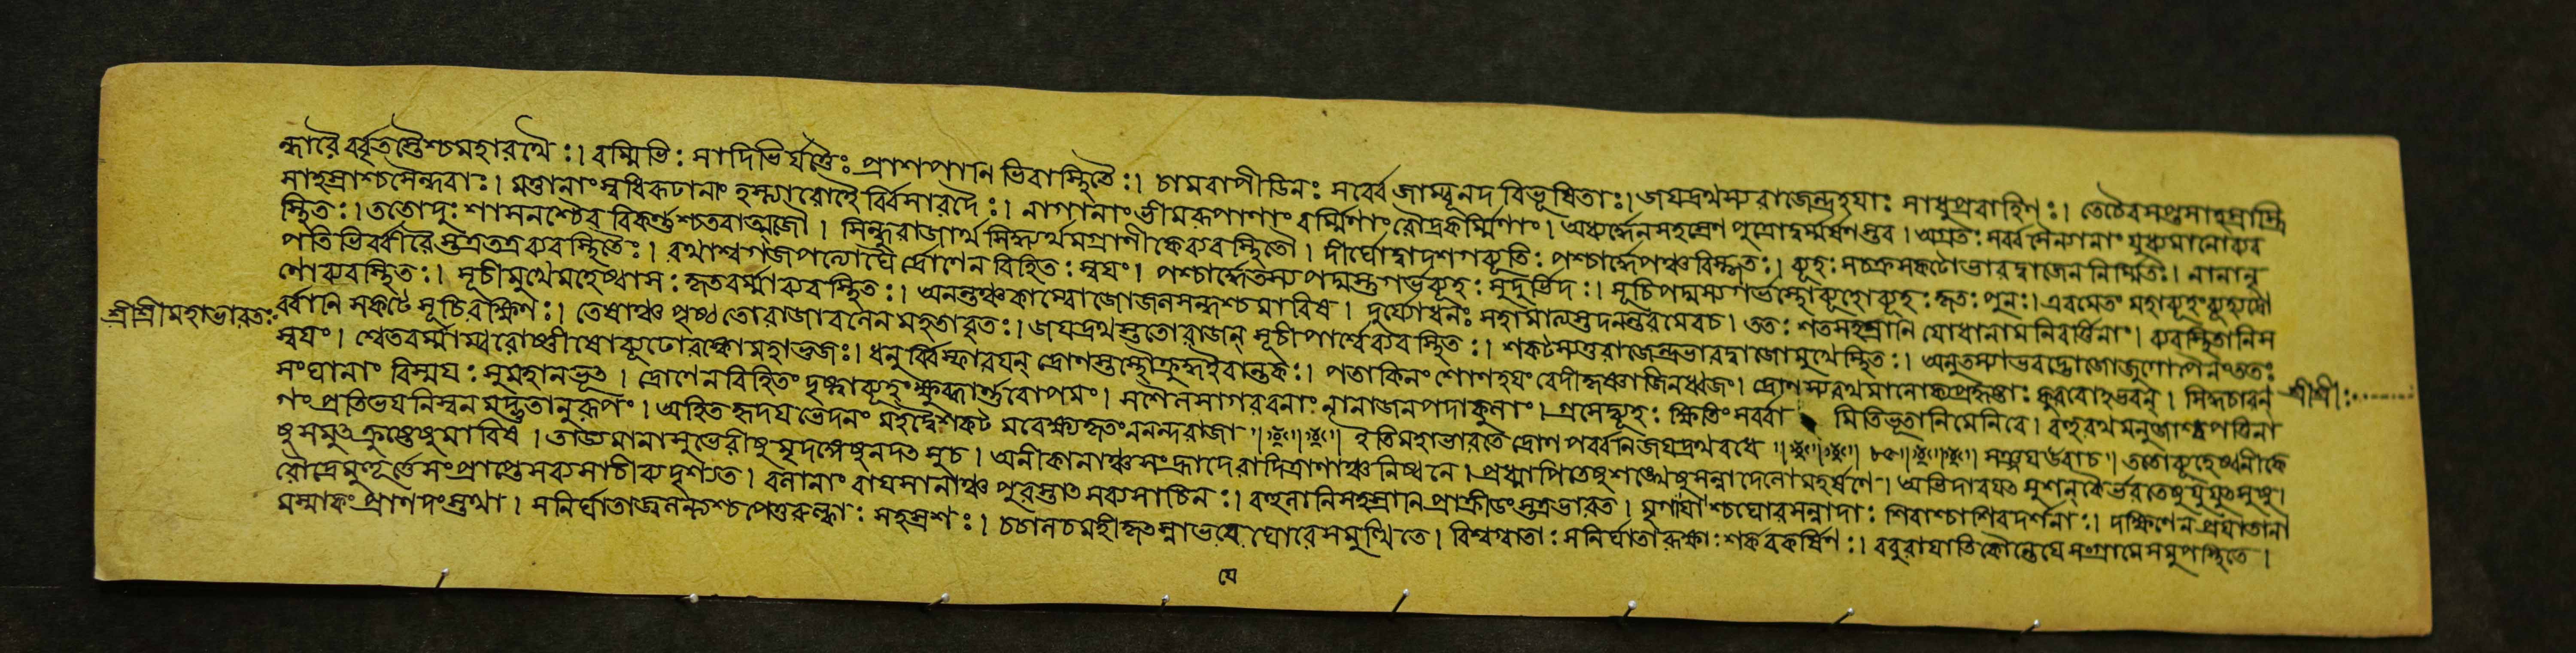 ন্ধারৈ বর্বৃতস্তৈশ্চমহারথৈ ঃ। বর্ম্মিভি ঃ সাদিভি র্যত্তৈঃ প্রাশপাণি ভিবাস্থিতৈ ঃ। চামরাপীডিনঃ সর্ব্বে জাম্বূনদ বিভূষিতাঃ। জযদ্রথস্য রাজেন্দ্রহযাঃ সাধুপ্রবাহিণ ঃ। তেচৈবসপ্তসাহস্রাস্ত্রি
সাহস্রাশ্চসৈন্ধবাঃ। মত্তানাং স্বধিরূঢানাং হস্ত্যারোহৈ র্বিসারদৈ ঃ। নাগানাং ভীমরূপাণাং বর্ম্মিণাং রৌদ্রকর্ম্মিণাং। অধ্যর্দ্ধেনসহস্রেণ পুত্রোদুর্ম্মর্ষণস্তব। অগ্রতঃ সর্ব্ব সৈন্যানাং যুধ্যমানোব্যব
স্থিত ঃ। ততোদুঃ শাসনশ্চৈব বিকর্ণ্ণশ্চতবাত্মজৌ। সিন্ধুরাজার্থ সিদ্ধ্যর্থমগ্রানীকেব্যবস্থিতৌ। দীর্ঘোদ্বাদশগব্যূতিঃ পশ্চার্দ্ধেপঞ্চবিস্তৃতঃ। ব্যূহঃ সচক্রসকটোভারদ্বাজেন নির্ম্মিতঃ। নানানৃ
পতি ভির্ব্বীরৈস্তত্রতত্রব্যবস্থিতৈঃ। রথাশ্বগজপত্ত্যোঘৈ র্দ্রোণেন বিহিতঃ স্বযং। পশ্চার্দ্ধেতস্য পদ্মস্তুগর্ভব্যূহঃ সুদুর্ভিদঃ। সূচিপদ্মস্যগর্ভস্থোব্যূহোব্যূহঃ কৃতঃ পুনঃ। এবমেতং মহাব্যূহং ব্যূহ্যদ্রৌ
ণোব্যবস্থিতঃ। সূচীমুখেমহেষ্বাসঃ কৃতবর্ম্মাব্যবস্থিতঃ। অনন্তরঞ্চকাম্বোজোজলসন্ধশ্চমারিষ। দুর্য্যোধনঃ সহামাত্যস্তদনন্তরমেবচ। ততঃ শতসহস্রানি যোধানামনিবর্ত্তিনাং। ব্যবস্থিতানিস
র্ব্বানি সকটে সূচিরক্ষিণঃ। তেষাঞ্চ পৃষ্ঠতোরাজাবলেন মহতাবৃতঃ। জযদ্রথস্ততোরাজন্ সূচীপার্শ্বেব্যবস্থিতঃ। শকটস্যতুরাজেন্দ্রভারদ্বাজোমুখেস্থিতঃ। অনুতস্যাভবদ্ভোজোজুগোপৈনংততঃ
স্বযং। শ্বেতবর্ম্মাম্বরোষ্ণীষোব্যূঢোরস্কোমহাভুজঃ। ধনুর্ব্বিস্ফারযন্ দ্রোণস্তস্থৌক্রুদ্ধইবান্তকঃ। পতাকিনং শোণহযং বেদীকৃষ্ণাজিনধ্বজং। দ্রোণস্যরথমালোক্যপ্রহৃষ্টাঃ কুরবোহভবন্। সিদ্ধচারণ
সংঘানাং বিস্মযঃ সুমহানভূত্। দ্রোণেনবিহিতং দৃষ্ট্বাব্যূহংক্ষুব্ধার্ণ্ণবোপমং। সশৈলসাগরবনাং নানাজনপদাকুলাং। গ্রসেদ্ব্যূহঃ ক্ষিতিং সর্ব্বা মিতিভূতানিমেনিরে। বহুরথমনুজাশ্বপত্তিনা
গং প্রতিভয নিস্বন মদ্ভুতানুরূপং। অহিত হৃদয ভেদনং মহদ্বৈশকট মবেক্ষ্যকৃতংননন্দরাজা॥ ইতিমহাভারতে দ্রোণ পর্ব্বনিজযদ্রথবধে॥ ৮৫॥ সঞ্জযউবাচ॥ ততোব্যূঢেষ্বনীকে
ষু সমুত্ক্রুষ্টেষুমারিষ। তাড্যমানাসুভেরীষু মৃদঙ্গেষুনদত্সুচ। অনীকানাঞ্চসংহ্রাদেবাদিত্রাণাঞ্চনিষ্বনে। প্রধ্মাপিতেষুশঙ্খেষুসন্নাদেলোমহর্ষণে। অভিহারযত্সুশনকৈর্ভরতেষুযুযুত্সুষু।
রৌদ্রেমুহূর্ত্তেসংপ্রাপ্তেসব্যসাচীব্যদৃশ্যত। বলানাং বাযসানাঞ্চ পুরস্তাত্সব্যসাচিনঃ। বহুলানিসহস্রানি প্রাক্রীডংস্তত্রভারত। মৃগাযাশ্চঘোরসন্নাদাঃ শিবাশ্চাশিবদর্শনাঃ। দক্ষিণেন প্রযাতানা
মস্মাকং প্রাণদংস্তথা। সনির্ঘাতাজ্বলন্ত্যশ্চপেতুরুল্কাঃ সহস্রশঃ। চচালচমহীকৃত্স্নাভযে ঘোরেসমুত্থিতে। বিশ্বগ্বাতাঃ সনির্ঘাতারূক্ষাঃ শর্করকর্ষিণঃ। ববুরাযাতিকৌন্তেযে সংগ্রামেসমুপস্থিতে।
শ্রীশ্রীমহাভারতঃ
শ্রীশ্রীঃ
যে